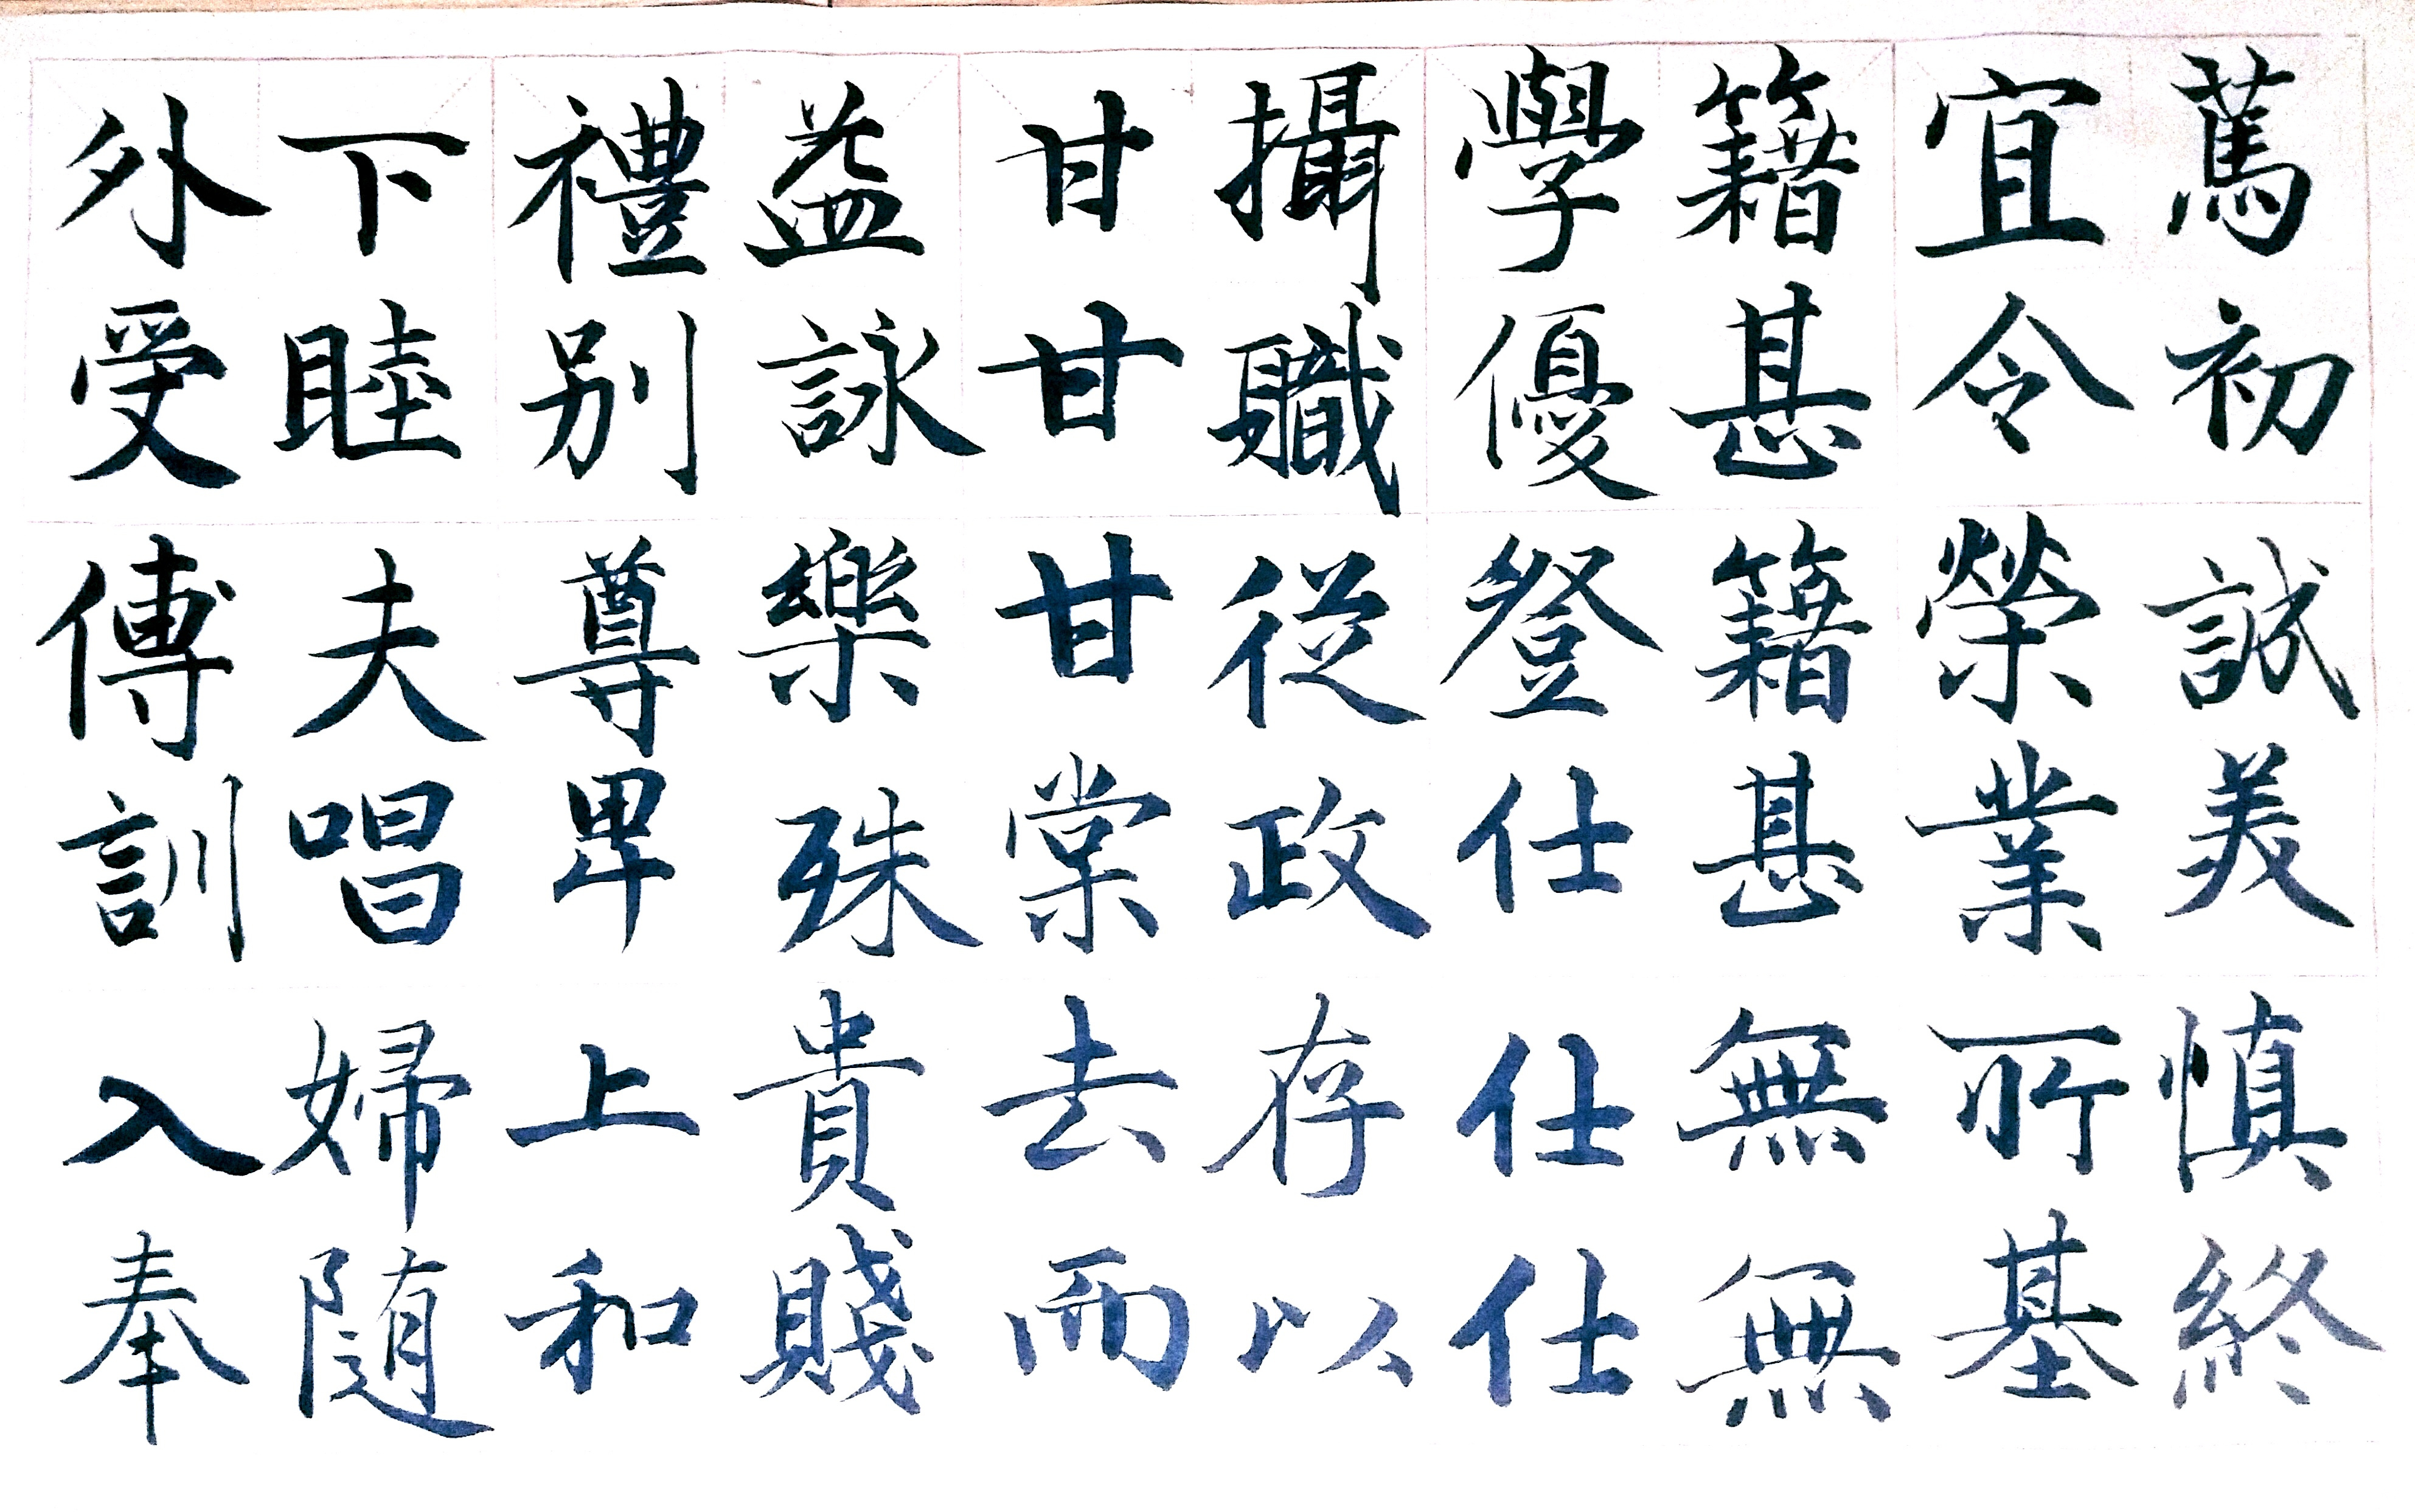 篤初誠美慎終
宜令榮業所基
籍甚籍甚無無
學優登仕仕仕
攝職從政存以
甘甘甘棠去而
益詠樂殊貴賤
禮别尊卑上和
下睦夫唱婦随
外受傅訓入奉